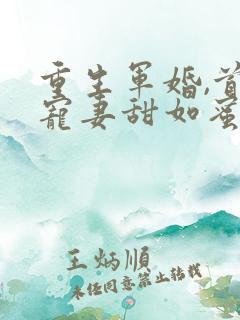 重生軍婚,首
寵妻甜如蜜
王炳順
未任同意禁止转载